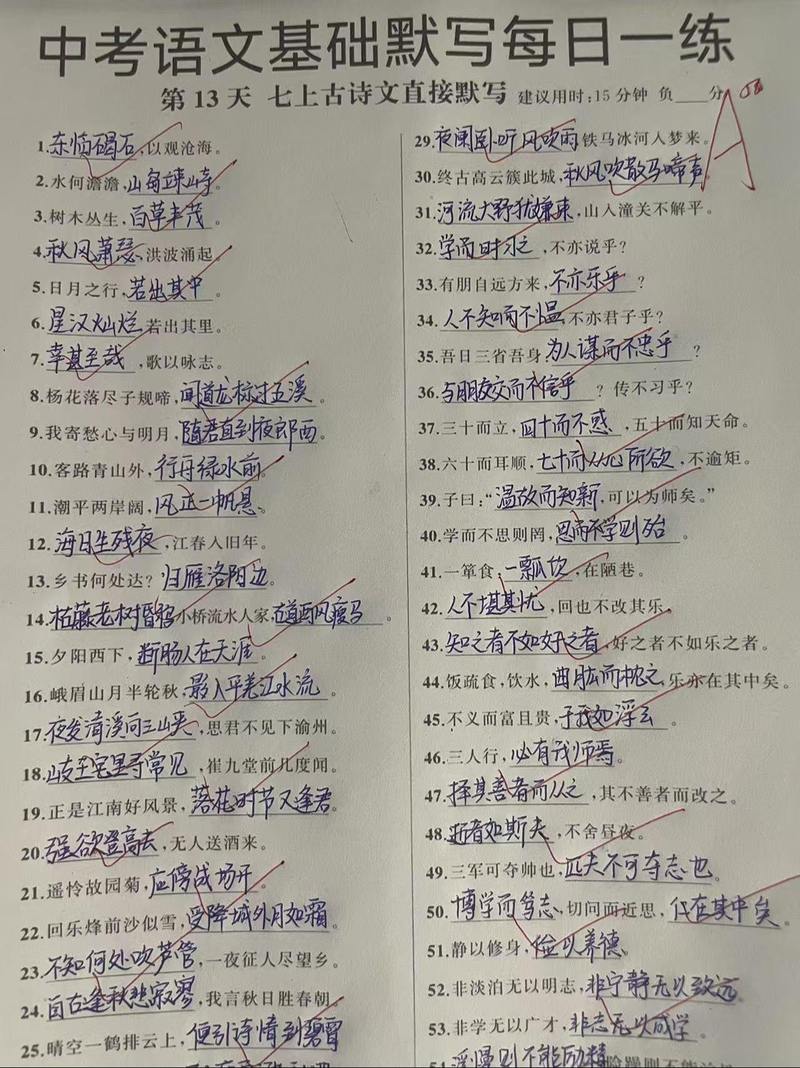 中考语文基础默写每日一练
第13天 七上古诗文直接默写 建议用时:15分钟 负___分
1.东临碣石,以观沧海。
2.水何澹澹,山岛竦峙。
3.树木丛生,百草丰茂。
4.秋风萧瑟,洪波涌起。
5.日月之行,若出其中。
6.星汉灿烂,若出其里。
7.幸甚至哉,歌以咏志。
8.杨花落尽子规啼,闻道龙标过五溪。
9.我寄愁心与明月,随君直到夜郎西。
10.客路青山外,行舟绿水前。
11.潮平两岸阔,风正一帆悬。
12.海日生残夜,江春人旧年。
13.乡书何处达?归雁洛阳边。
14.枯藤老树昏鸦小桥流水人家,古道西风瘦马。
15.夕阳西下,断肠人在天涯。
16.峨眉山月半轮秋,影入平羌江水流。
17.夜发清溪向三峡,思君不见下渝州。
18.岐王宅里寻常见,崔九堂前几度闻。
19.正是江南好风景,落花时节又逢君。
20.强欲登高去,无人送酒来。
21.遥怜故园菊,应傍战场开。
22.回乐烽前沙似雪,受降城外月如霜。
23.不知何处吹芦管,一夜征人尽望乡。
24.自古逢秋悲寂寥,我言秋日胜春朝。
25.晴空一鹤排云上,便引诗情到碧霄
29.夜阑卧听风吹雨铁马冰河人梦来。
30.终古高云簇此城,秋风吹散马啼声
31.河流大野犹嫌束,山入潼关不解平。
32.学而时习之,不亦说乎?
33.有朋自远方来,不亦乐乎?
34.人不知而不愠,不亦君子乎?
35.吾日三省吾身为人谋而不忠乎?
36.与朋友交而不信乎?传不习乎?
37.三十而立,四十而不惑,五十而知天命。
38.六十而耳顺,七十而从心所欲,不逾矩。
39.子曰:“温故而知新,可以为师矣。”
40.学而不思则罔,思而不学则殆。
41.一箪食,一瓢饮,在陋巷。
42.人不堪其忧,回也不改其乐。
43.知之者不如好之者,好之者不如乐之者。
44.饭疏食,饮水,曲肱而枕之,乐亦在其中矣。
45.不义而富且贵,于我如浮云。
46.三人行,必有我师焉。
47.择其善者而从之,其不善者而改之。
48.逝者如斯夫,不舍昼夜。
49.三军可夺帅也,匹夫不可夺志也。
50.博学而笃志,切问而近思,仁在其中矣
51.静以修身,俭以养德。
52.非淡泊无以明志,非宁静无以致远
53.非学无以广才,非志无以成学。